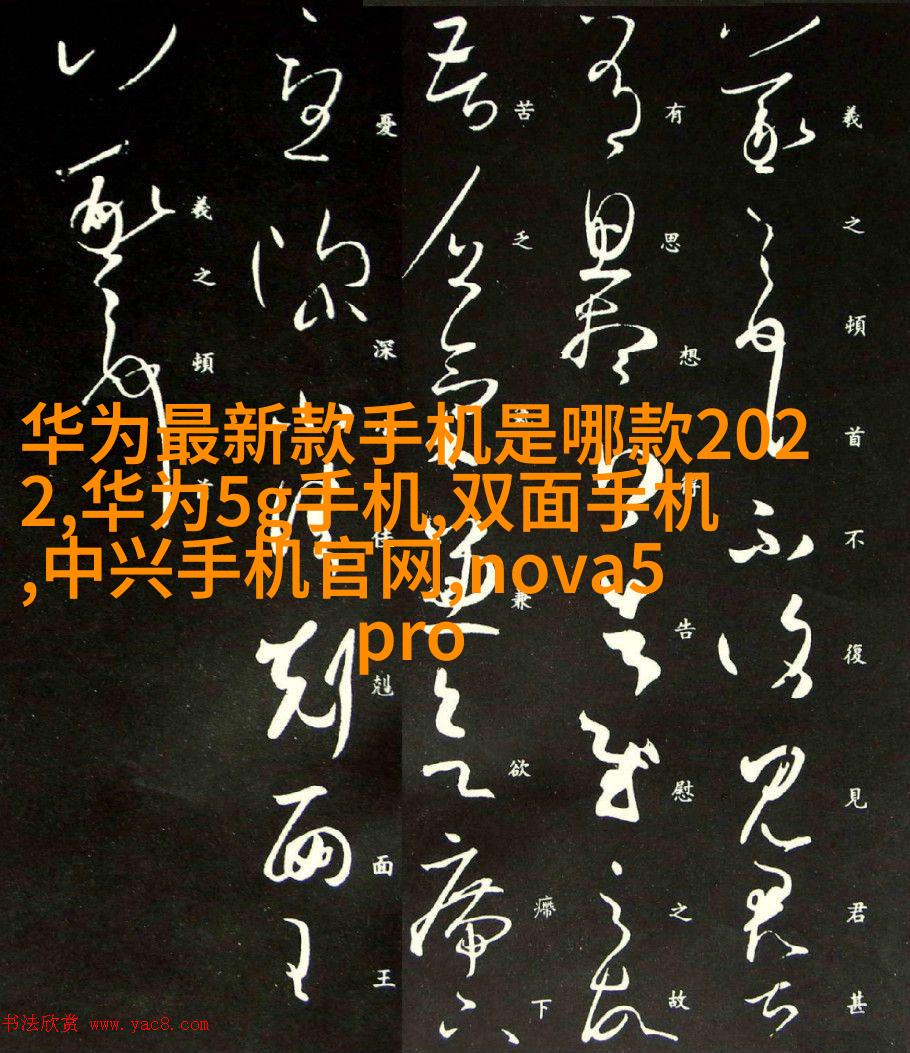 羲之頓首不復見君甚
有思想得告慰之故
苦乏兼欲㿃下
憂深佳剋面王
羲之頓
华为最新款手机是哪款202
2,华为5g手机,双面手机
,中兴手机官网,nova5
pro
书法欣赏 www.yac8.com